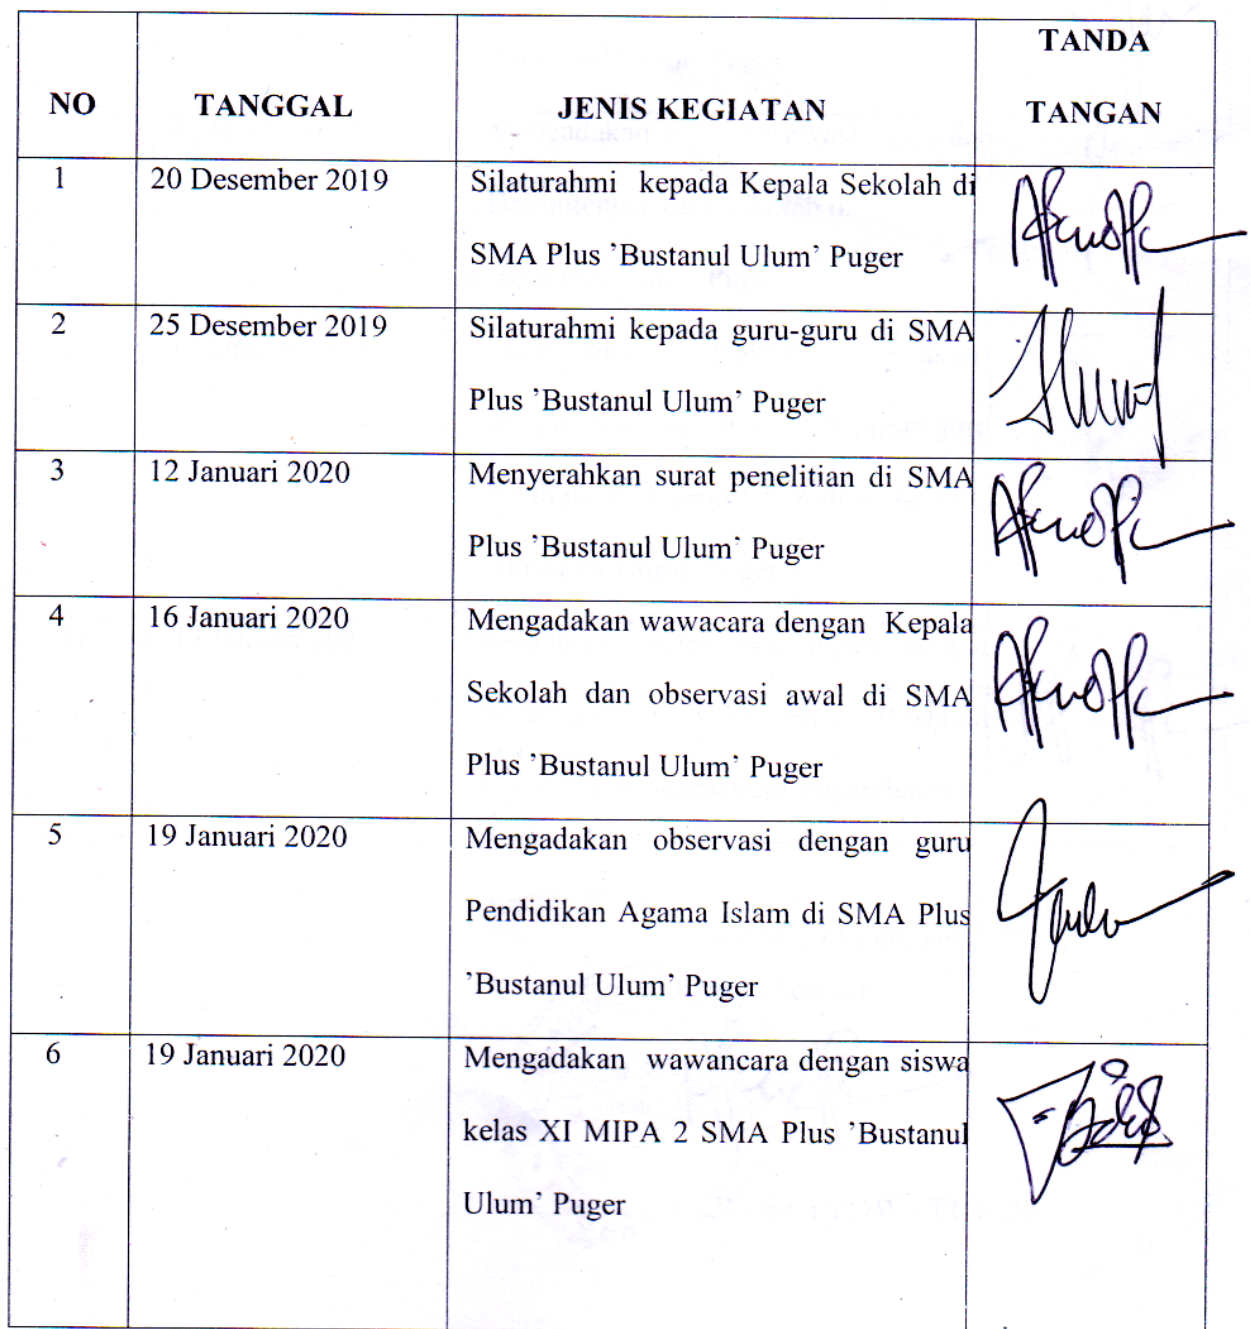 NO TANGGAL JENIS KEGIATAN TANDA TANGAN
1 20 Desember 2019 Silaturahmi kepada Kepala Sekolah di
SMA Plus ’Bustanul Ulum’ Puger
2 25 Desember 2019 Silaturahmi kepada guru-guru di SMA
Plus ’Bustanul Ulum’ Puger
3 12 Januari 2020 Menyerahkan surat penelitian di SMA
Plus ’Bustanul Ulum’ Puger
4 16 Januari 2020 Mengadakan wawacara dengan Kepala
Sekolah dan observasi awal di SMA
Plus ’Bustanul Ulum’ Puger
5 19 Januari 2020 Mengadakan observasi dengan guru
Pendidikan Agama Islam di SMA Plus
’Bustanul Ulum’ Puger
6 19 Januari 2020 Mengadakan wawancara dengan siswa
kelas XI MIPA 2 SMA Plus ’Bustanul
Ulum’ Puger